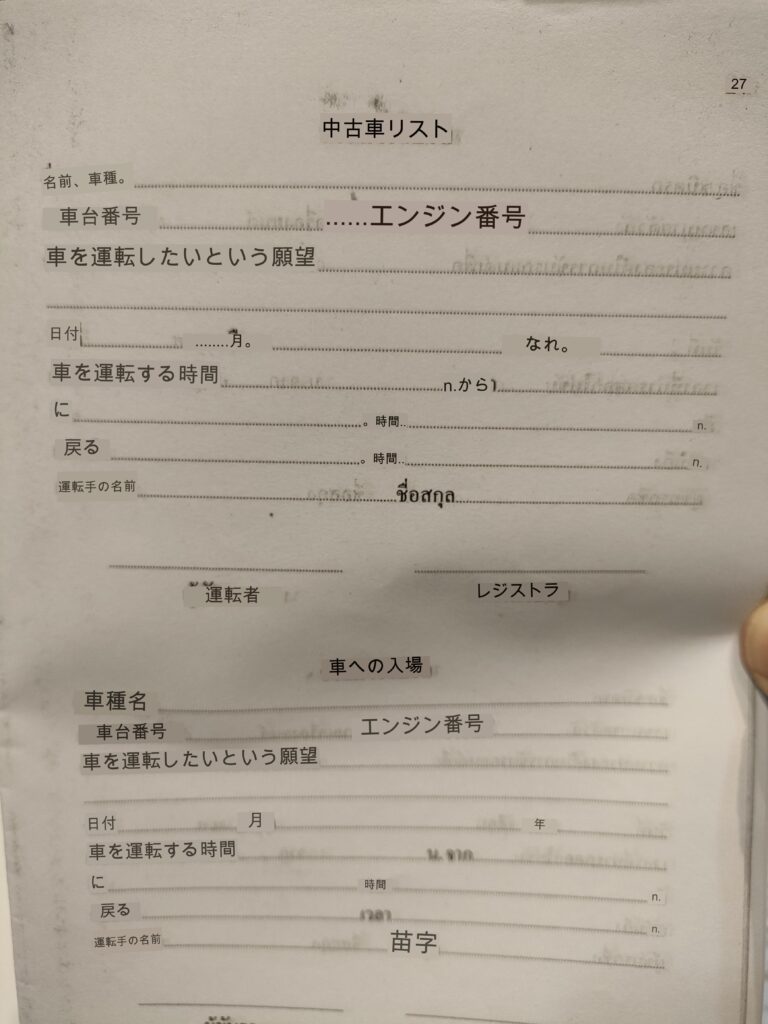 27
中古車リスト
名前、車種。
車台番号 ......エンジン番号
車を運転したいという願望
日付 ........月。 なれ。
車を運転する時間 n.から
に 。時間.. n.
戻る 。時間.. n.
運転手の名前 ชื่อสกุล
運転者 レジストラ
車への入場
車種名
車台番号 エンジン番号
車を運転したいという願望
日付 月 年
車を運転する時間 น. จาก
に 時間 n.
戻る เวลา n.
運転手の名前 苗字